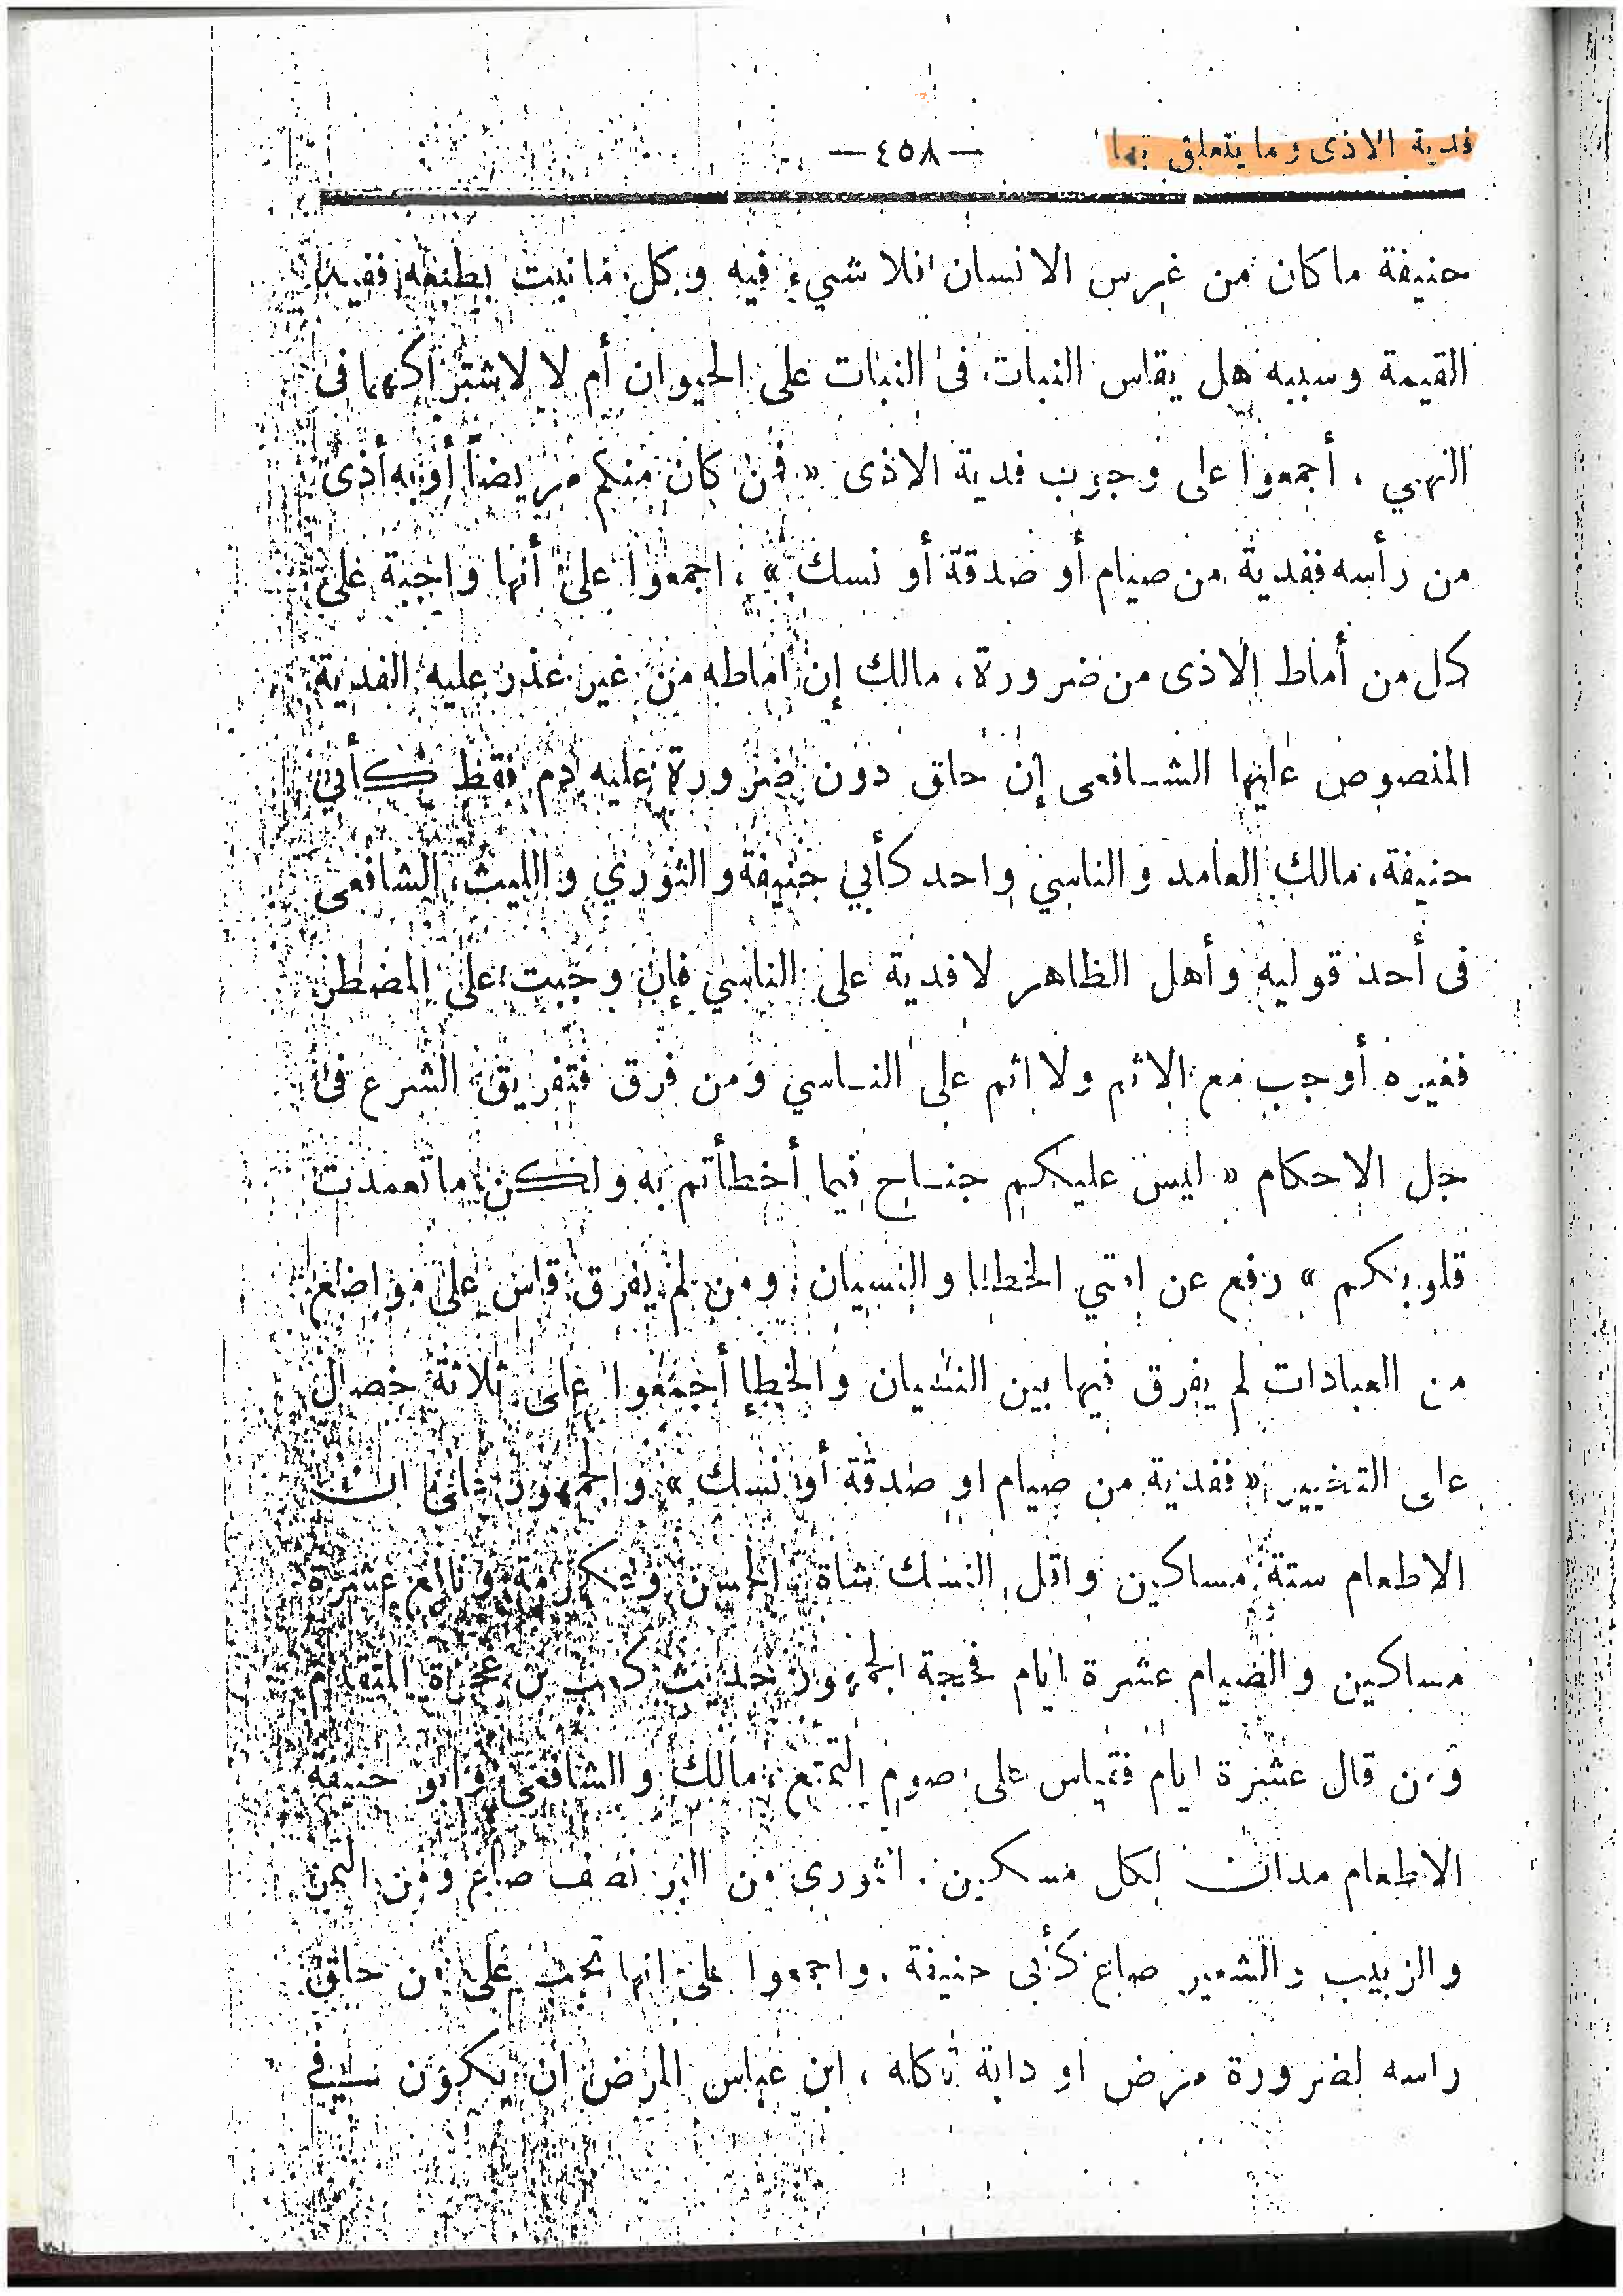 فدية الاذى وما يتعلق بها
— ٤٥٨ —
حنيفة ما كان من غرس الانسان فلا شيء فيه وكل ما نبت بطبعه ففيه
القيمة وسببه هل يقاس النبات فى النبات على الحيوان أم لا لاشتراكهما فى
النهي ، أجمعوا على وجوب فدية الاذى « فمن كان منكم مريضاً أو به أذى
من رأسه ففدية من صيام أو صدقة أو نسك » ، اجمعوا على أنها واجبة على
كل من أماط الاذى من ضرورة ، مالك إن اماطه من غير عذر عليه الفدية
المنصوص عليها الشافعى إن حلق دون ضرورة عليه دم فقط كأبي
حنيفة ، مالك العامد والناسي واحد كأبي حنيفة والثوري والليث ، الشافعى
فى أحد قوليه وأهل الظاهر لا فدية على الناسي فإن وجبت على المضطر
فغيره أوجب مع الاثم ولا اثم على الناسي ومن فرق فتفريق الشرع فى
جل الاحكام « ليس عليكم جناح فيما أخطأتم به ولكن ما تعمدت
قلوبكم » رفع عن امتي الخطا والنسيان ومن لم يفرق قاس على مواضع
من العبادات لم يفرق فيها بين النسيان والخطإ أجمعوا على ثلاثة خصال
على التخيير « ففدية من صيام او صدقة أو نسك » والجمهور على ان
الاطعام ستة مساكين واقل النسك شاة الحسن وعكرمة ونافع عشرة
مساكين والصيام عشرة ايام فحجة الجمهور حديث كعب بن عجرة المتقدم
ومن قال عشرة ايام فقياس على صوم التمتع ، مالك والشافعى وابو حنيفة
الاطعام مدان لكل مسكين . الثورى من البر نصف صاع ومن التمر
والزبيب والشعير صاع كأبى حنيفة . واجمعوا على انها تجب على من حلق
راسه لضرورة مرض او دابة تاكله ، ابن عباس المرض ان يكون فى